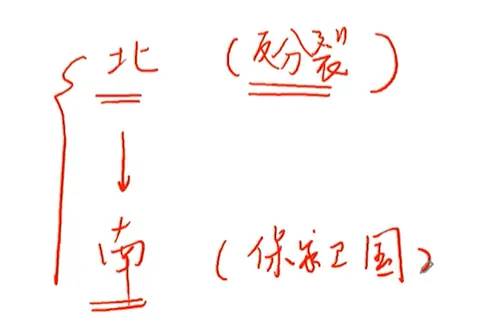 北 (反分裂)
↓
南 (保家卫国)